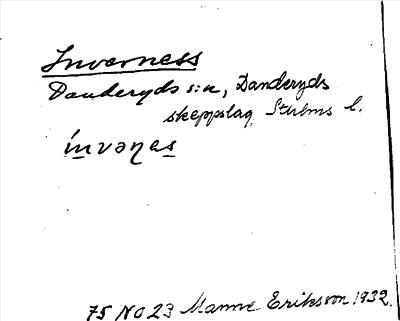 Inverness
Danderyds s:n, Danderyds
skeppslag, Sthlms l.
ínvəņes
75 NO 23 Manne Eriksson 1932.